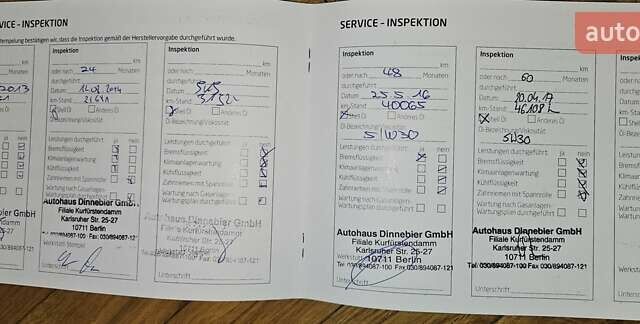 SERVICE - INSPEKTION
SERVICE - INSPEKTION
auto
empelung bestätigen wir, dass die Inspektion gemäß der Herstellervorgabe durchgeführt wurde.
2013
ja nein
Inspektion
km
oder nach 24 Monaten
durchgeführt
Datum
km-Stand
Anderes Öl
Öl-Bezeichnung/Viskosität
Leistungen durchgeführt ja nein
Bremsflüssigkeit
Klimaanlagenwartung
Kühlflüssigkeit
Zahnriemen mit Spannrolle
Wartung nach Gasanlagen-
Wartungsplan durchgeführt
Autohaus Dinnebier GmbH
Filiale Kurfürstendamm
Karlsruher Str. 25-27
10711 Berlin
Werkstatt-Stempel
Unterschrift
Inspektion
km
oder nach Monaten
durchgeführt
Datum
km-Stand
Anderes Öl
Öl-Bezeichnung/Viskosität
Leistungen durchgeführt ja nein
Bremsflüssigkeit
Klimaanlagenwartung
Kühlflüssigkeit
Zahnriemen mit Spannrolle
Wartung nach Gasanlagen-
Wartungsplan durchgeführt
Autohaus Dinnebier GmbH
Filiale Kurfürstendamm
Karlsruher Str. 25-27
10711 Berlin
Unterschrift
Inspektion
km
oder nach 48 Monaten
durchgeführt
Datum 25.5.16
km-Stand 40065
Anderes Öl
Öl-Bezeichnung/Viskosität
5W30
Leistungen durchgeführt ja nein
Bremsflüssigkeit
Klimaanlagenwartung
Kühlflüssigkeit
Zahnriemen mit Spannrolle
Wartung nach Gasanlagen-
Wartungsplan durchgeführt
Autohaus Dinnebier GmbH
Filiale Kurfürstendamm
Karlsruher Str. 25-27
10711 Berlin
Tel. 030/894087-100 Fax 030/894087-121
Unterschrift
Inspektion
km
oder nach 60 Monaten
durchgeführt
Datum
km-Stand
Anderes Öl
Öl-Bezeichnung/Viskosität
5W30
Leistungen durchgeführt ja nein
Bremsflüssigkeit
Klimaanlagenwartung
Kühlflüssigkeit
Zahnriemen mit Spannrolle
Wartung nach Gasanlagen-
Wartungsplan durchgeführt
Autohaus Dinnebier GmbH
Filiale Kurfürstendamm
Karlsruher Str. 25-27
10711 Berlin
Tel. 030/894087-100 Fax: 030/894087-121
Unterschrift